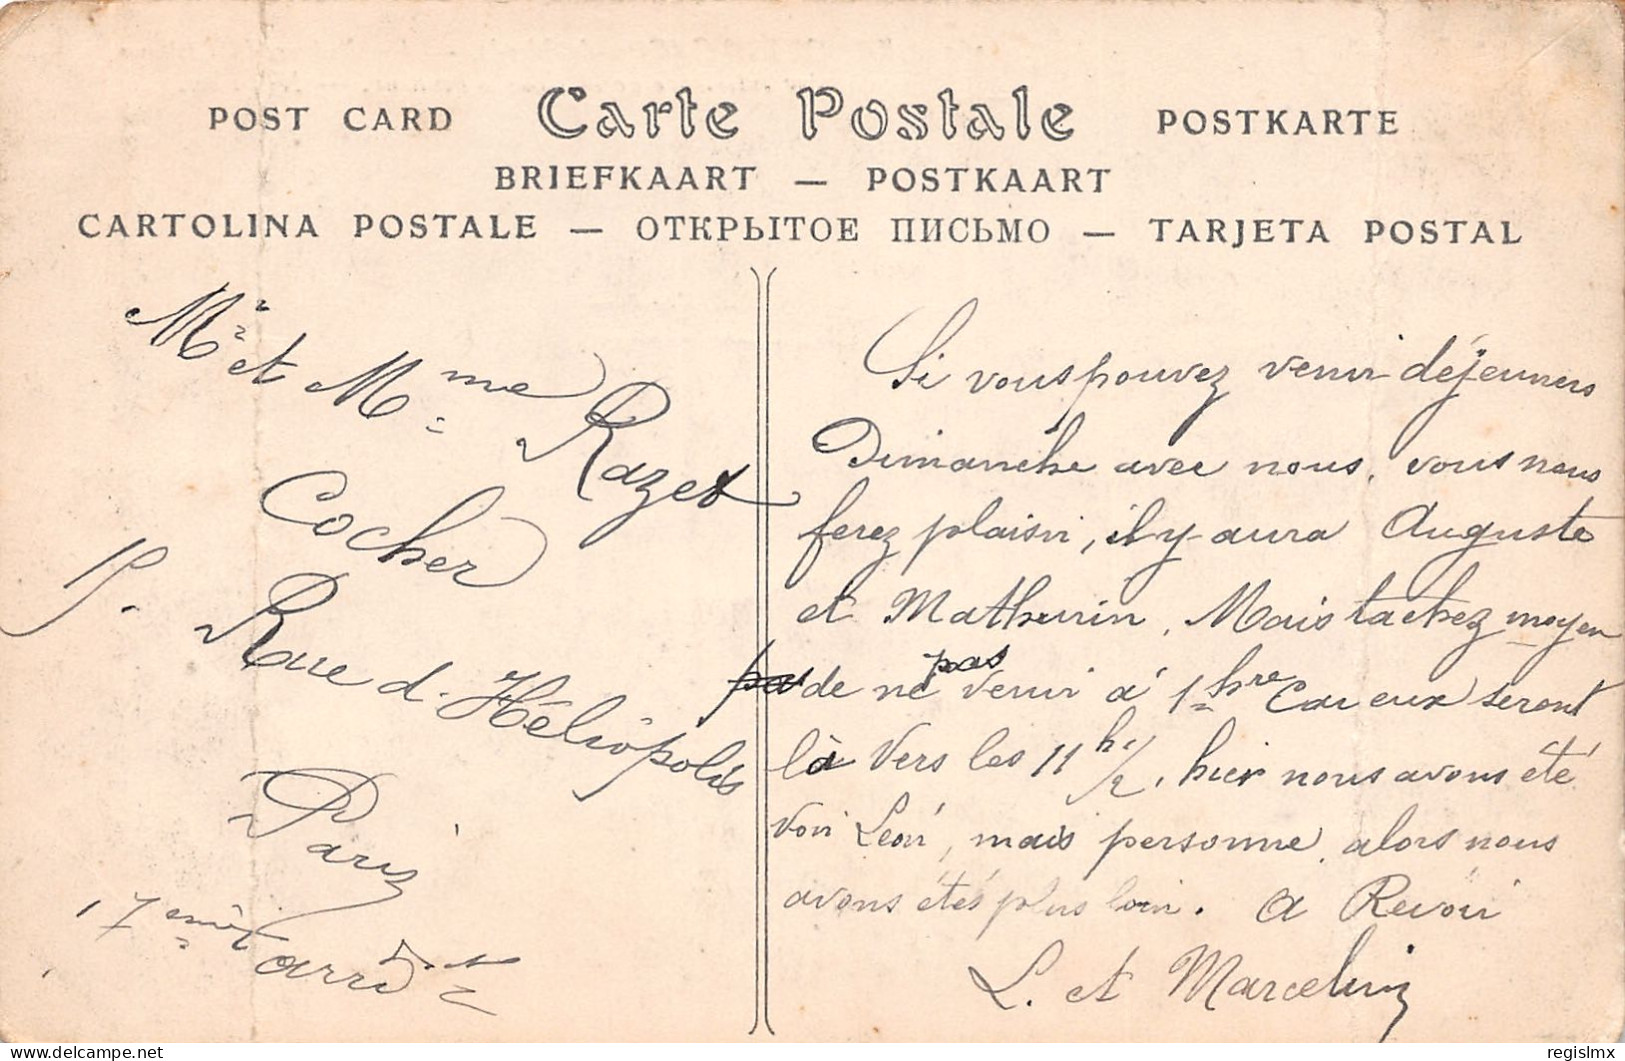 POST CARD Carte Postale POSTKARTE
BRIEFKAART — POSTKAART
CARTOLINA POSTALE — ОТКРЫТОЕ ПИСЬМО — TARJETA POSTAL
Mr et Mme Razet
Cocher
9. Rue d'Héliopolis
Paris
17eme arrdt
Si vous pouvez venir déjeuners
Dimanche avec nous, vous nous
ferez plaisir, il y aura Auguste
et Mathurin. Mais tachez moyen
de ne pas venir à 1hre Car eux seront
là Vers les 11h 1/2, hier nous avons été
voir Léon, mais personne, alors nous
avons étés plus loin. A Revoir
L. et Marcelin
regislmx